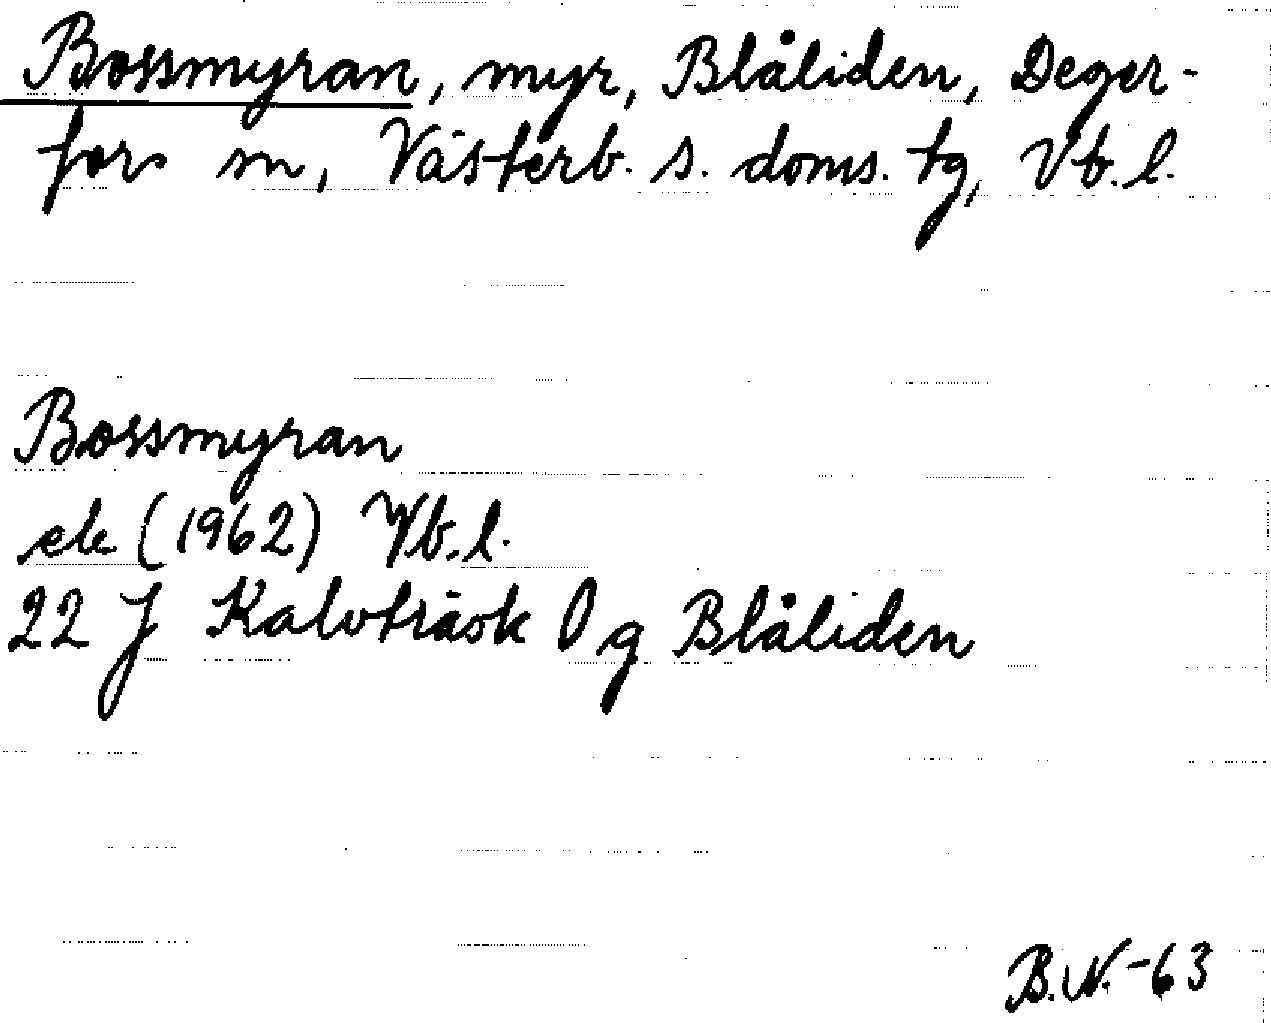 Bossmyran, myr, Blåliden, Deger-
fors sn, Västerb. s. doms. tg, Vb. l.
Bossmyran
ek (1962) Vb. l.
22 J Kalvträsk 0 g Blåliden
B.N.-63